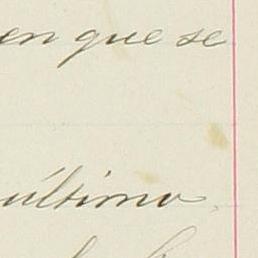 en que se
último